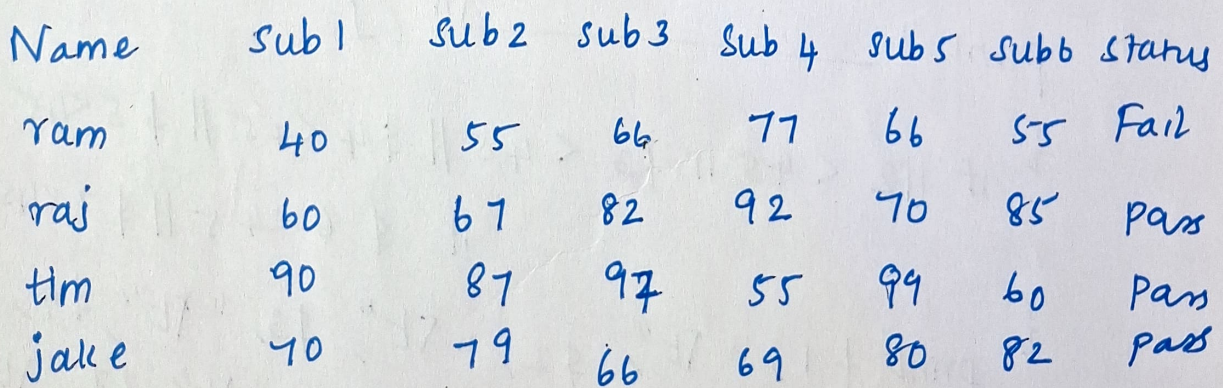 Name sub 1 sub 2 sub 3 sub 4 sub 5 sub 6 status
ram 40 55 66 77 66 55 Fail
raj 60 67 82 92 70 85 pass
tim 90 87 97 55 99 60 pass
jake 70 79 66 69 80 82 pass